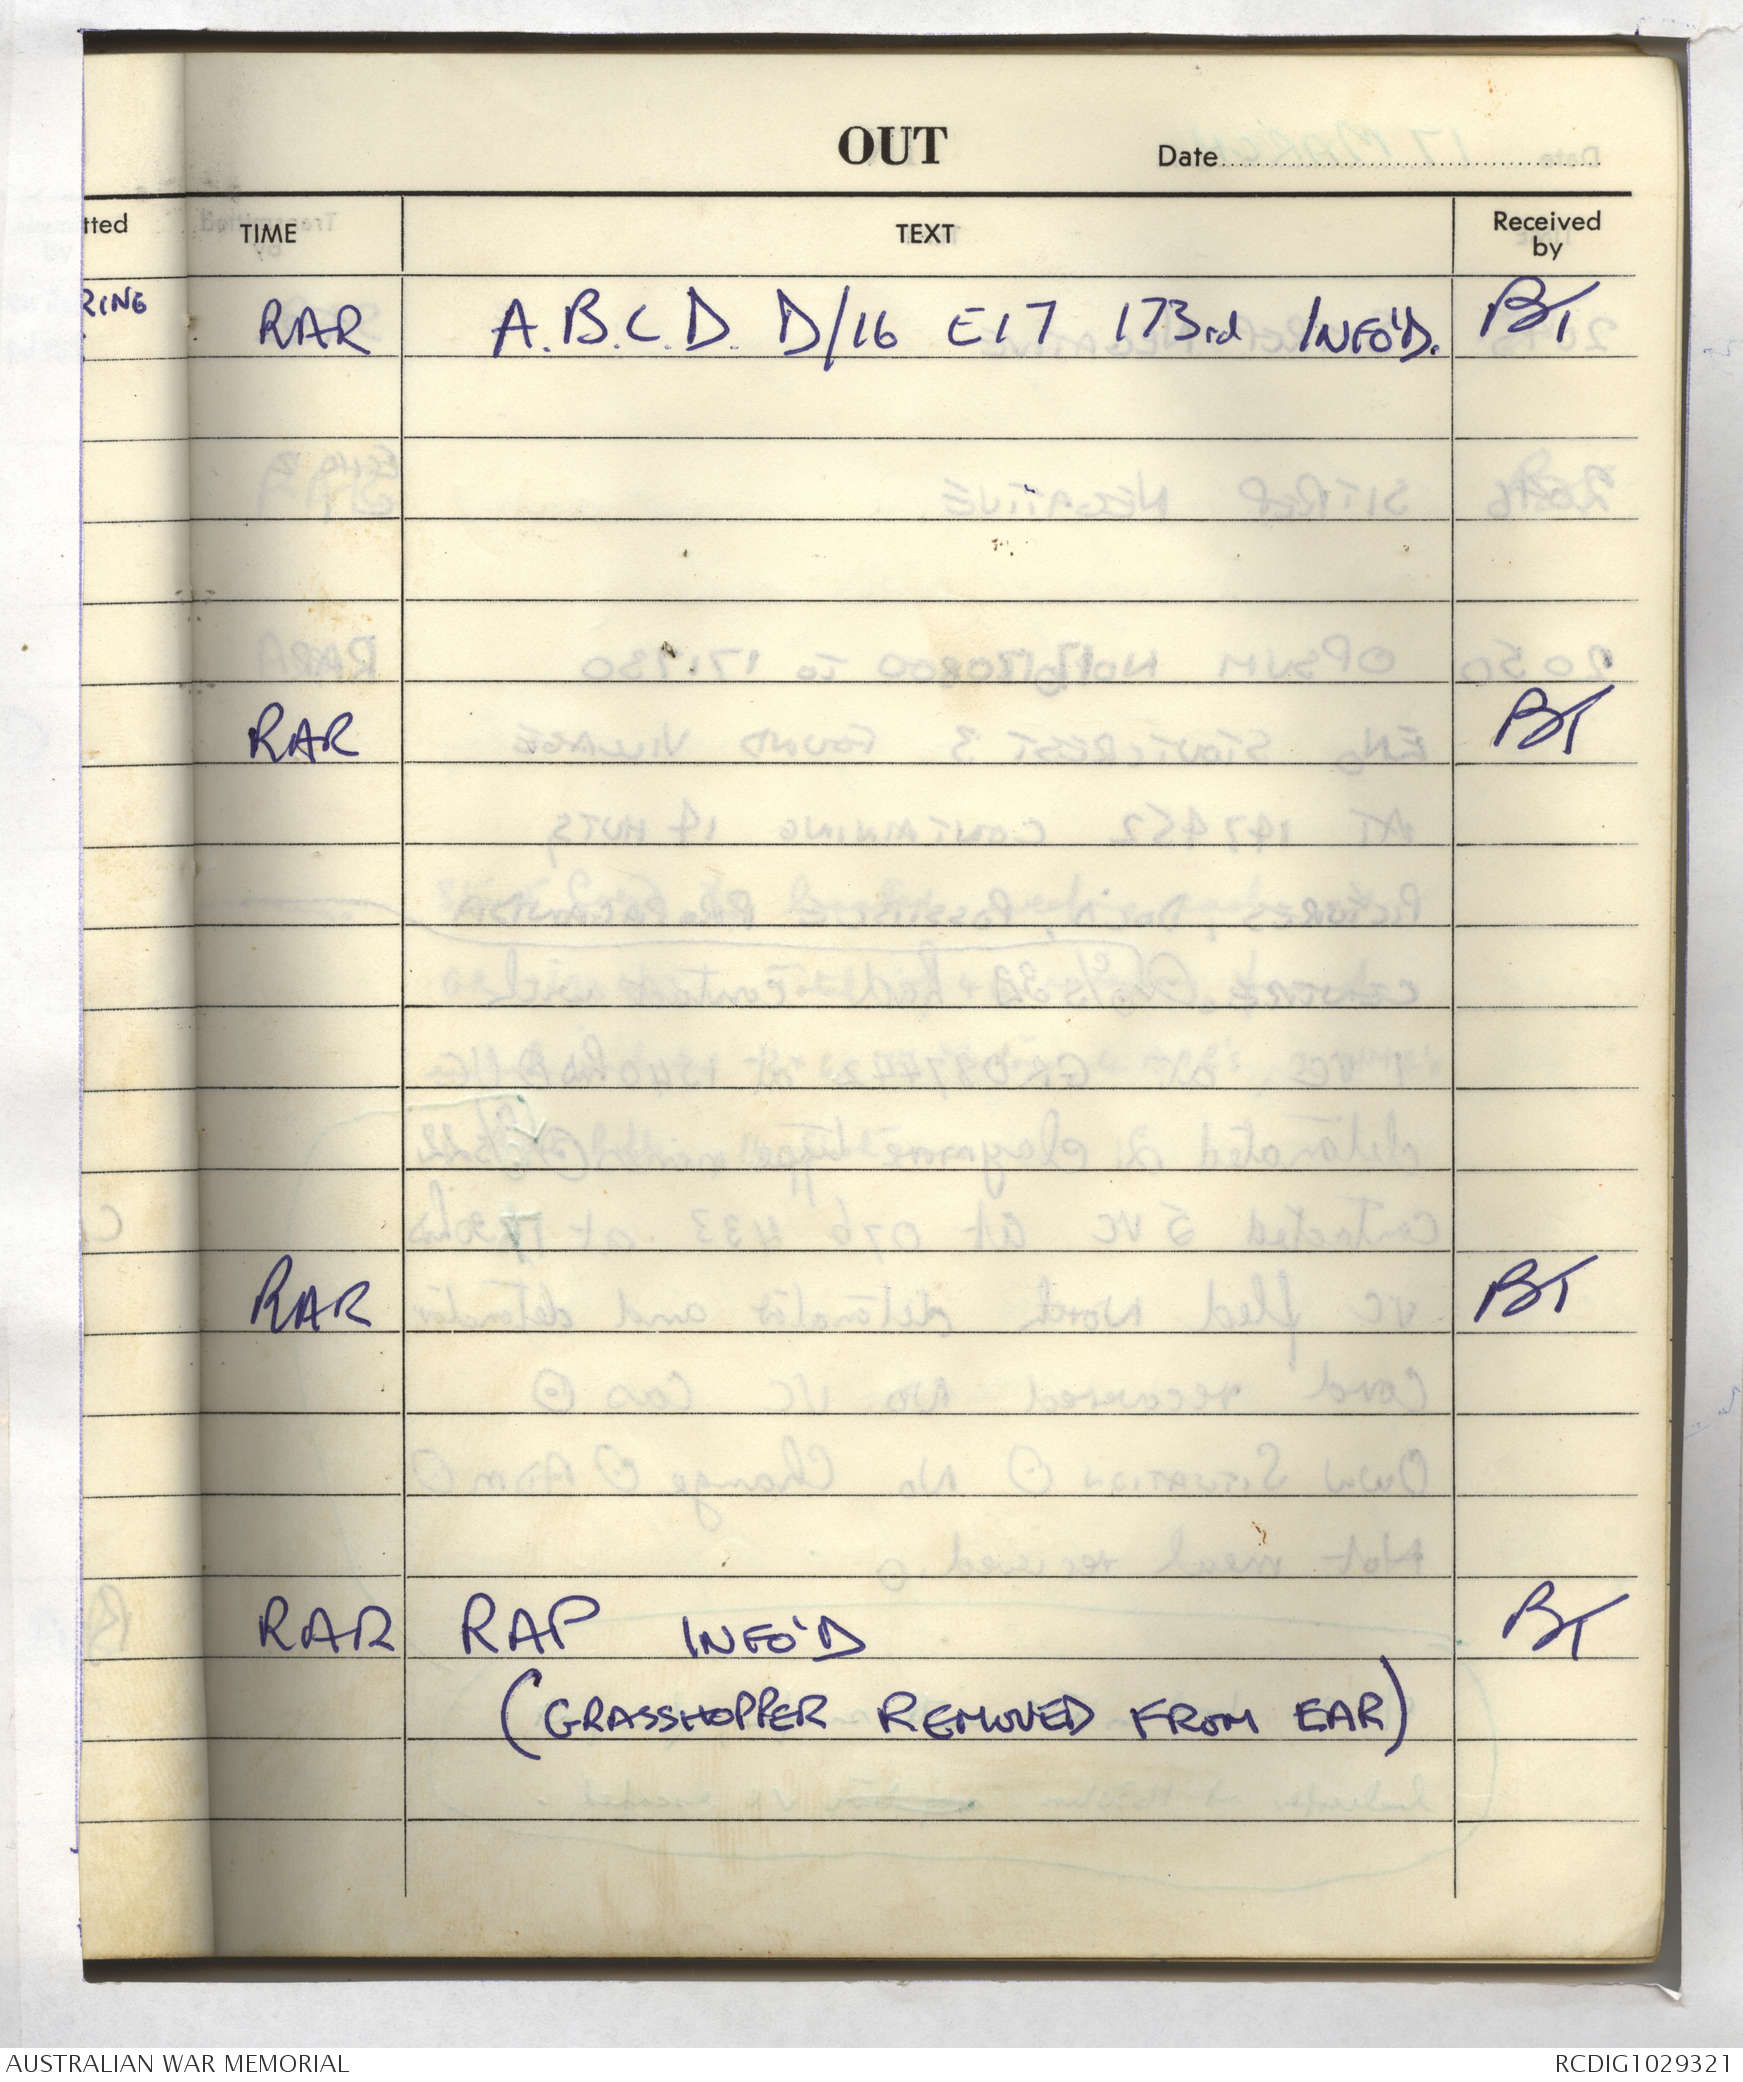 OUT
Date
tted
TIME
TEXT
Received
by
RING
RAR A.B.C.D. D/16 E17 173rd INFO'D. BT
RAR BT
RAR BT
RAR RAP INFO'D BT
(GRASSHOPPER REMOVED FROM EAR)
AUSTRALIAN WAR MEMORIAL
RCDIG1029321